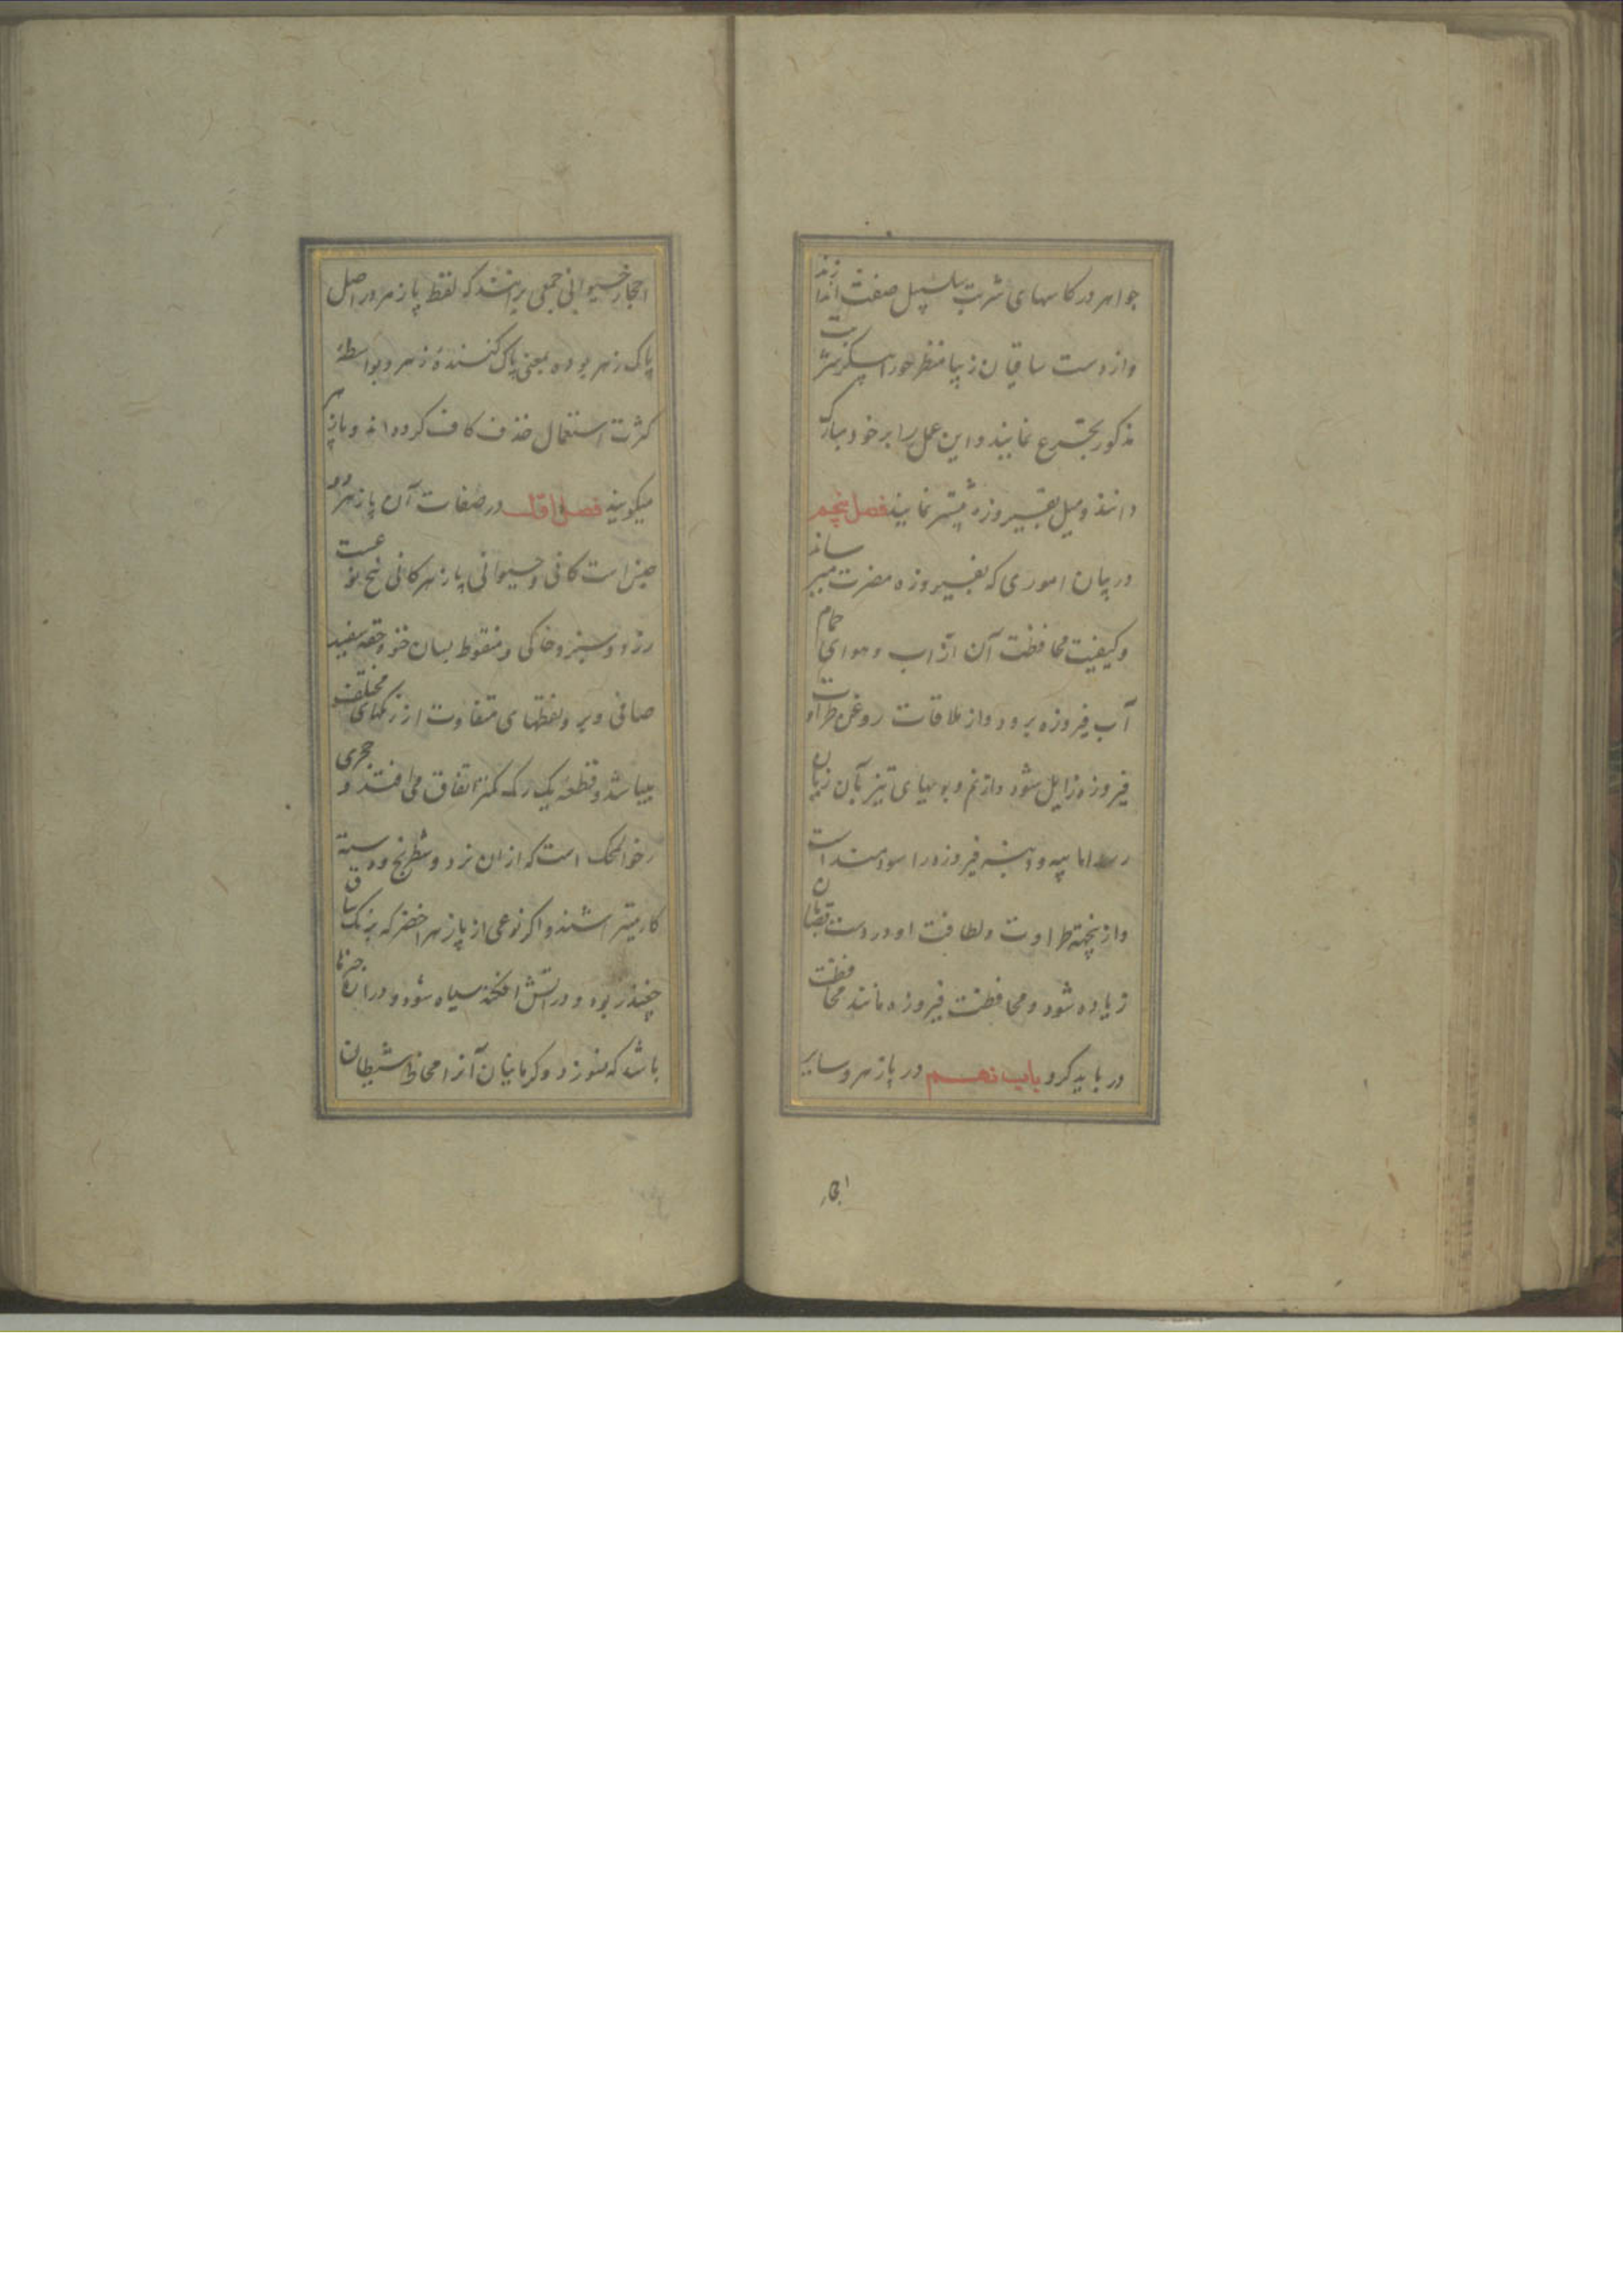 جواهر در کاسهای شربت سلسبیل صفت اندازند
و از دست ساقیان زیبا منظر حورا پیکر شربت
مذکور تجرع نمایند و این عمل را بر خود مبارک
دانند و میل بفیروزه بیشتر نمایند فصل پنجم
در بیان اموری که بفیروزه مضرت میرساند
و کیفیت محافظت آن از آب و هوای حمام
آب فیروزه برود و از ملاقات روغن طراوت
فیروزه زایل شود و از نم و بویهای تیز بآن زیان
رسد اما پیه و دنبه فیروزه را سودمند است
و ازینجهته طراوت و لطافت او در دست قصابان
زیاده شود و محافظت فیروزه مانند محافظت
در باید کرد باب نهم در پازهر و سایر
احجار
احجار حیوانی جمعی برانند که لفظ پازهر در اصل
پاک زهر بوده بمعنی پاک کنندهٔ زهر و بواسطهٔ
کثرت استعمال حذف کاف کرده اند و پازهر
میگویند فصل اول در صفات آن پازهر دو
جنس است کانی و حیوانی پازهر کانی پنج نوعست
زرد و سبز و خاکی و منقوط بسان و سفید
صافی و بر و نقطهای متفاوت از رنگهای مختلف
میباشد و قطعه یک رنگ کمتر اتفاق می افتد و حجری
رخو المحک است که از ان نرد و شطرنج و دسته
کارد میتراشند و اگر نوعی از پازهر اخضر که برنگ ساق
چغندر بود و در آتش افکنند سیاه شود و در ان
باشد که نسوزد و کرمانیان آنرا مخاط شیطان